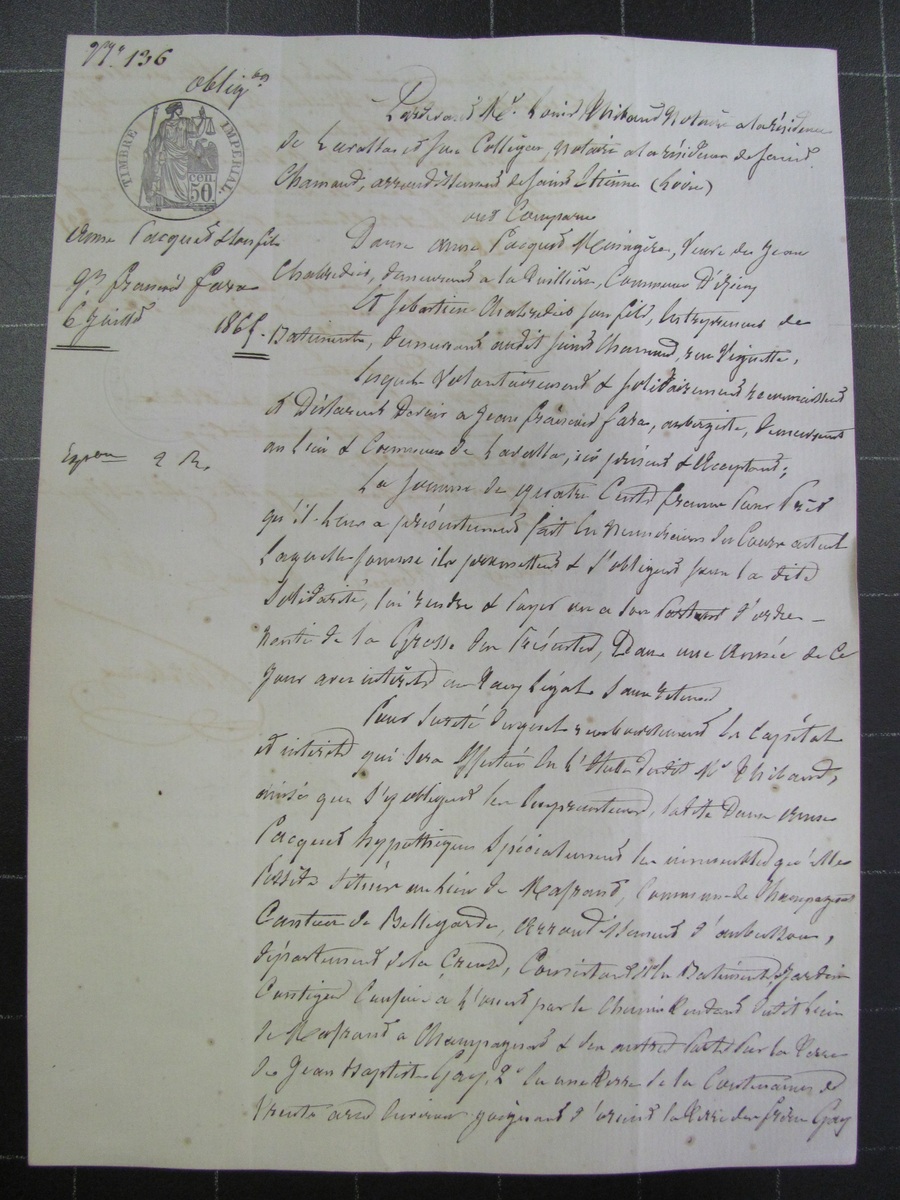 N° 136
obligon
TIMBRE IMPERIAL
50 cen
Anne Pacquet & son fils
à Jn françois fara
6 Juillet 1865.
2 R.
Pardevant Me Louis Thibaud Notaire à la résidence
de Lavalla et son Collègue, Notaire à la résidence de Saint
Chamond, arrondissement de Saint Etienne (Loire)
ont Comparu
Dame anne Pacquet Ménagère, Veuve de Jean
demeurant à la Commune D'Izieux
Et Sébastien son fils, Entrepreneur de
Batiments, demeurant audit Saint Chamond, rue
Lesquels Volontairement & solidairement reconnaissent
et Déclarent Devoir à Jean françois fara, aubergiste, demeurant
au Lieu & Commune de Lavalla, ici présent & Acceptant;
La somme de quatre Cents francs Pour Prêt
qu'il leur a présentement fait En Numéraire du Cours actuel
Laquelle somme ils promettent & s'obligent sous la dite
Solidarité, lui rendre & Payer ou à son d'ordre
de la Grosse des Présentes, Dans une Année de Ce
Jour avec intérêts au Taux Légal Sans retenue
Pour Sureté Duquel remboursement En Capital
et intérêts qui Sera Effectué En L'Etude dudit Me Thibaud,
ainsi que S'y obligent les Emprunteurs, ladite Dame anne
Pacquet hypothèque Spécialement les immeubles qu'elle
Possède Situés au Lieu de Commune de Champagnat
Canton de Bellegarde, Arrondissement d'aubusson,
département de la Creuse, Consistant 1° En Batiments, Jardin
Contigu Confiné à par le Chemin Tendant dudit Lieu
de à Champagnat & des autres Parts Par la Terre
de Jean Baptiste Gay, 2° En une Terre de la Contenance de
Trente ares Environ joignant d'orient la Terre des frères Gay